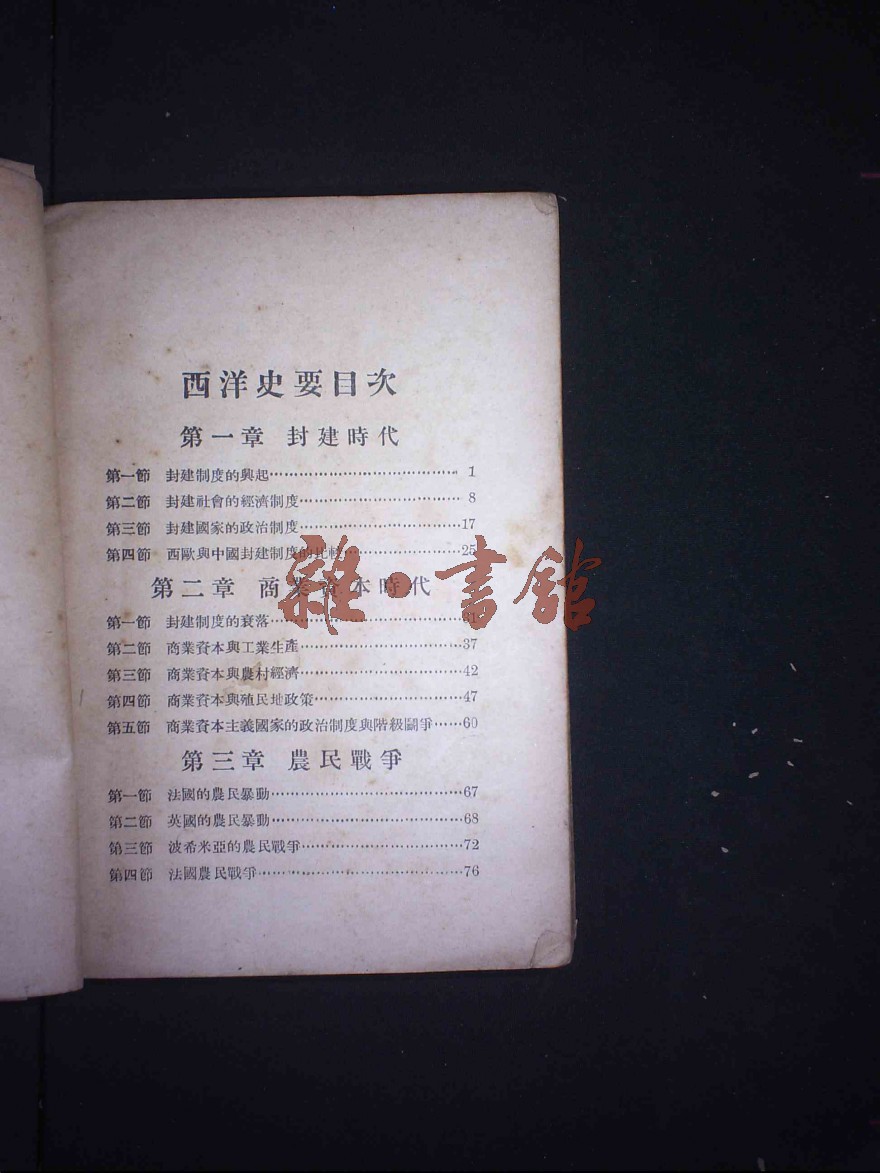 西洋史要目次
第一章 封建時代
第一節 封建制度的興起…………………………………1
第二節 封建社會的經濟制度……………………………8
第三節 封建國家的政治制度……………………………17
第四節 西歐與中國封建制度的比較……………………25
第二章 商業資本時代
第一節 封建制度的衰落…………………………………31
第二節 商業資本與工業生產……………………………37
第三節 商業資本與農村經濟……………………………42
第四節 商業資本與殖民地政策…………………………47
第五節 商業資本主義國家的政治制度與階級鬭爭……60
第三章 農民戰爭
第一節 法國的農民暴動…………………………………67
第二節 英國的農民暴動…………………………………68
第三節 波希米亞的農民戰爭……………………………72
第四節 法國農民戰爭……………………………………76
雜·書館